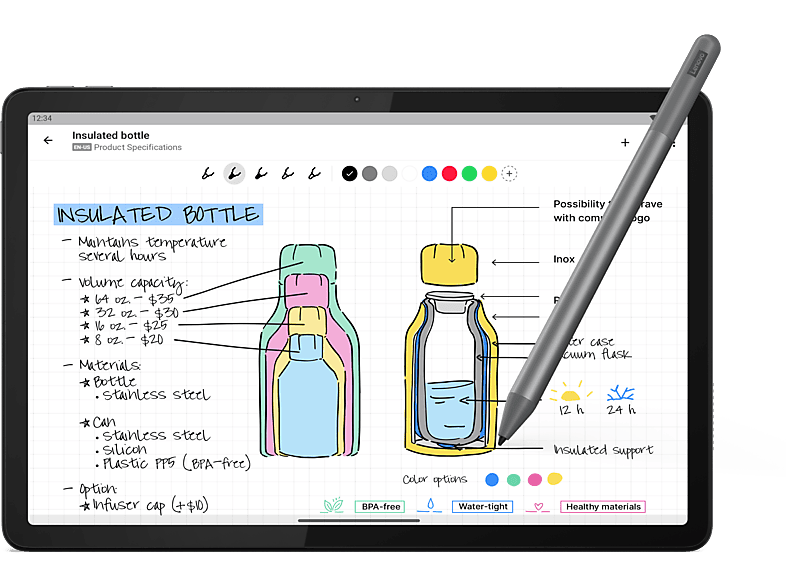 12:34
Insulated bottle
EN-US Product Specifications
INSULATED BOTTLE
– Maintains temperature
several hours
– Volume capacity:
★ 64 oz. – $35
★ 32 oz. – $30
★ 16 oz. – $25
★ 8 oz. – $20
– Materials:
★ Bottle
• stainless steel
★ Can
• stainless steel
• silicon
• Plastic PP5 (BPA-free)
– Option:
★ Infuser cap (+$10)
Possibility
with
Inox
case
flask
12 h 24 h
Insulated support
Color options
BPA-free
Water-tight
Healthy materials
Lenovo